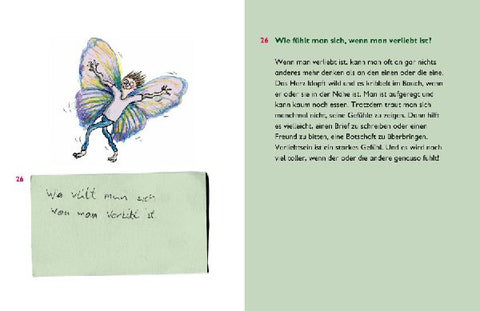 26
Wa vült man sich
Wan man Verlibt ist
26 Wie fühlt man sich, wenn man verliebt ist?
Wenn man verliebt ist, kann man oft an gar nichts
anderes mehr denken als an den einen oder die eine.
Das Herz klopft wild und es kribbelt im Bauch, wenn
er oder sie in der Nähe ist. Man ist aufgeregt und
kann kaum noch essen. Trotzdem traut man sich
manchmal nicht, seine Gefühle zu zeigen. Dann hilft
es vielleicht, einen Brief zu schreiben oder einen
Freund zu bitten, eine Botschaft zu überbringen.
Verliebtsein ist ein starkes Gefühl. Und es wird noch
viel toller, wenn der oder die andere genauso fühlt!